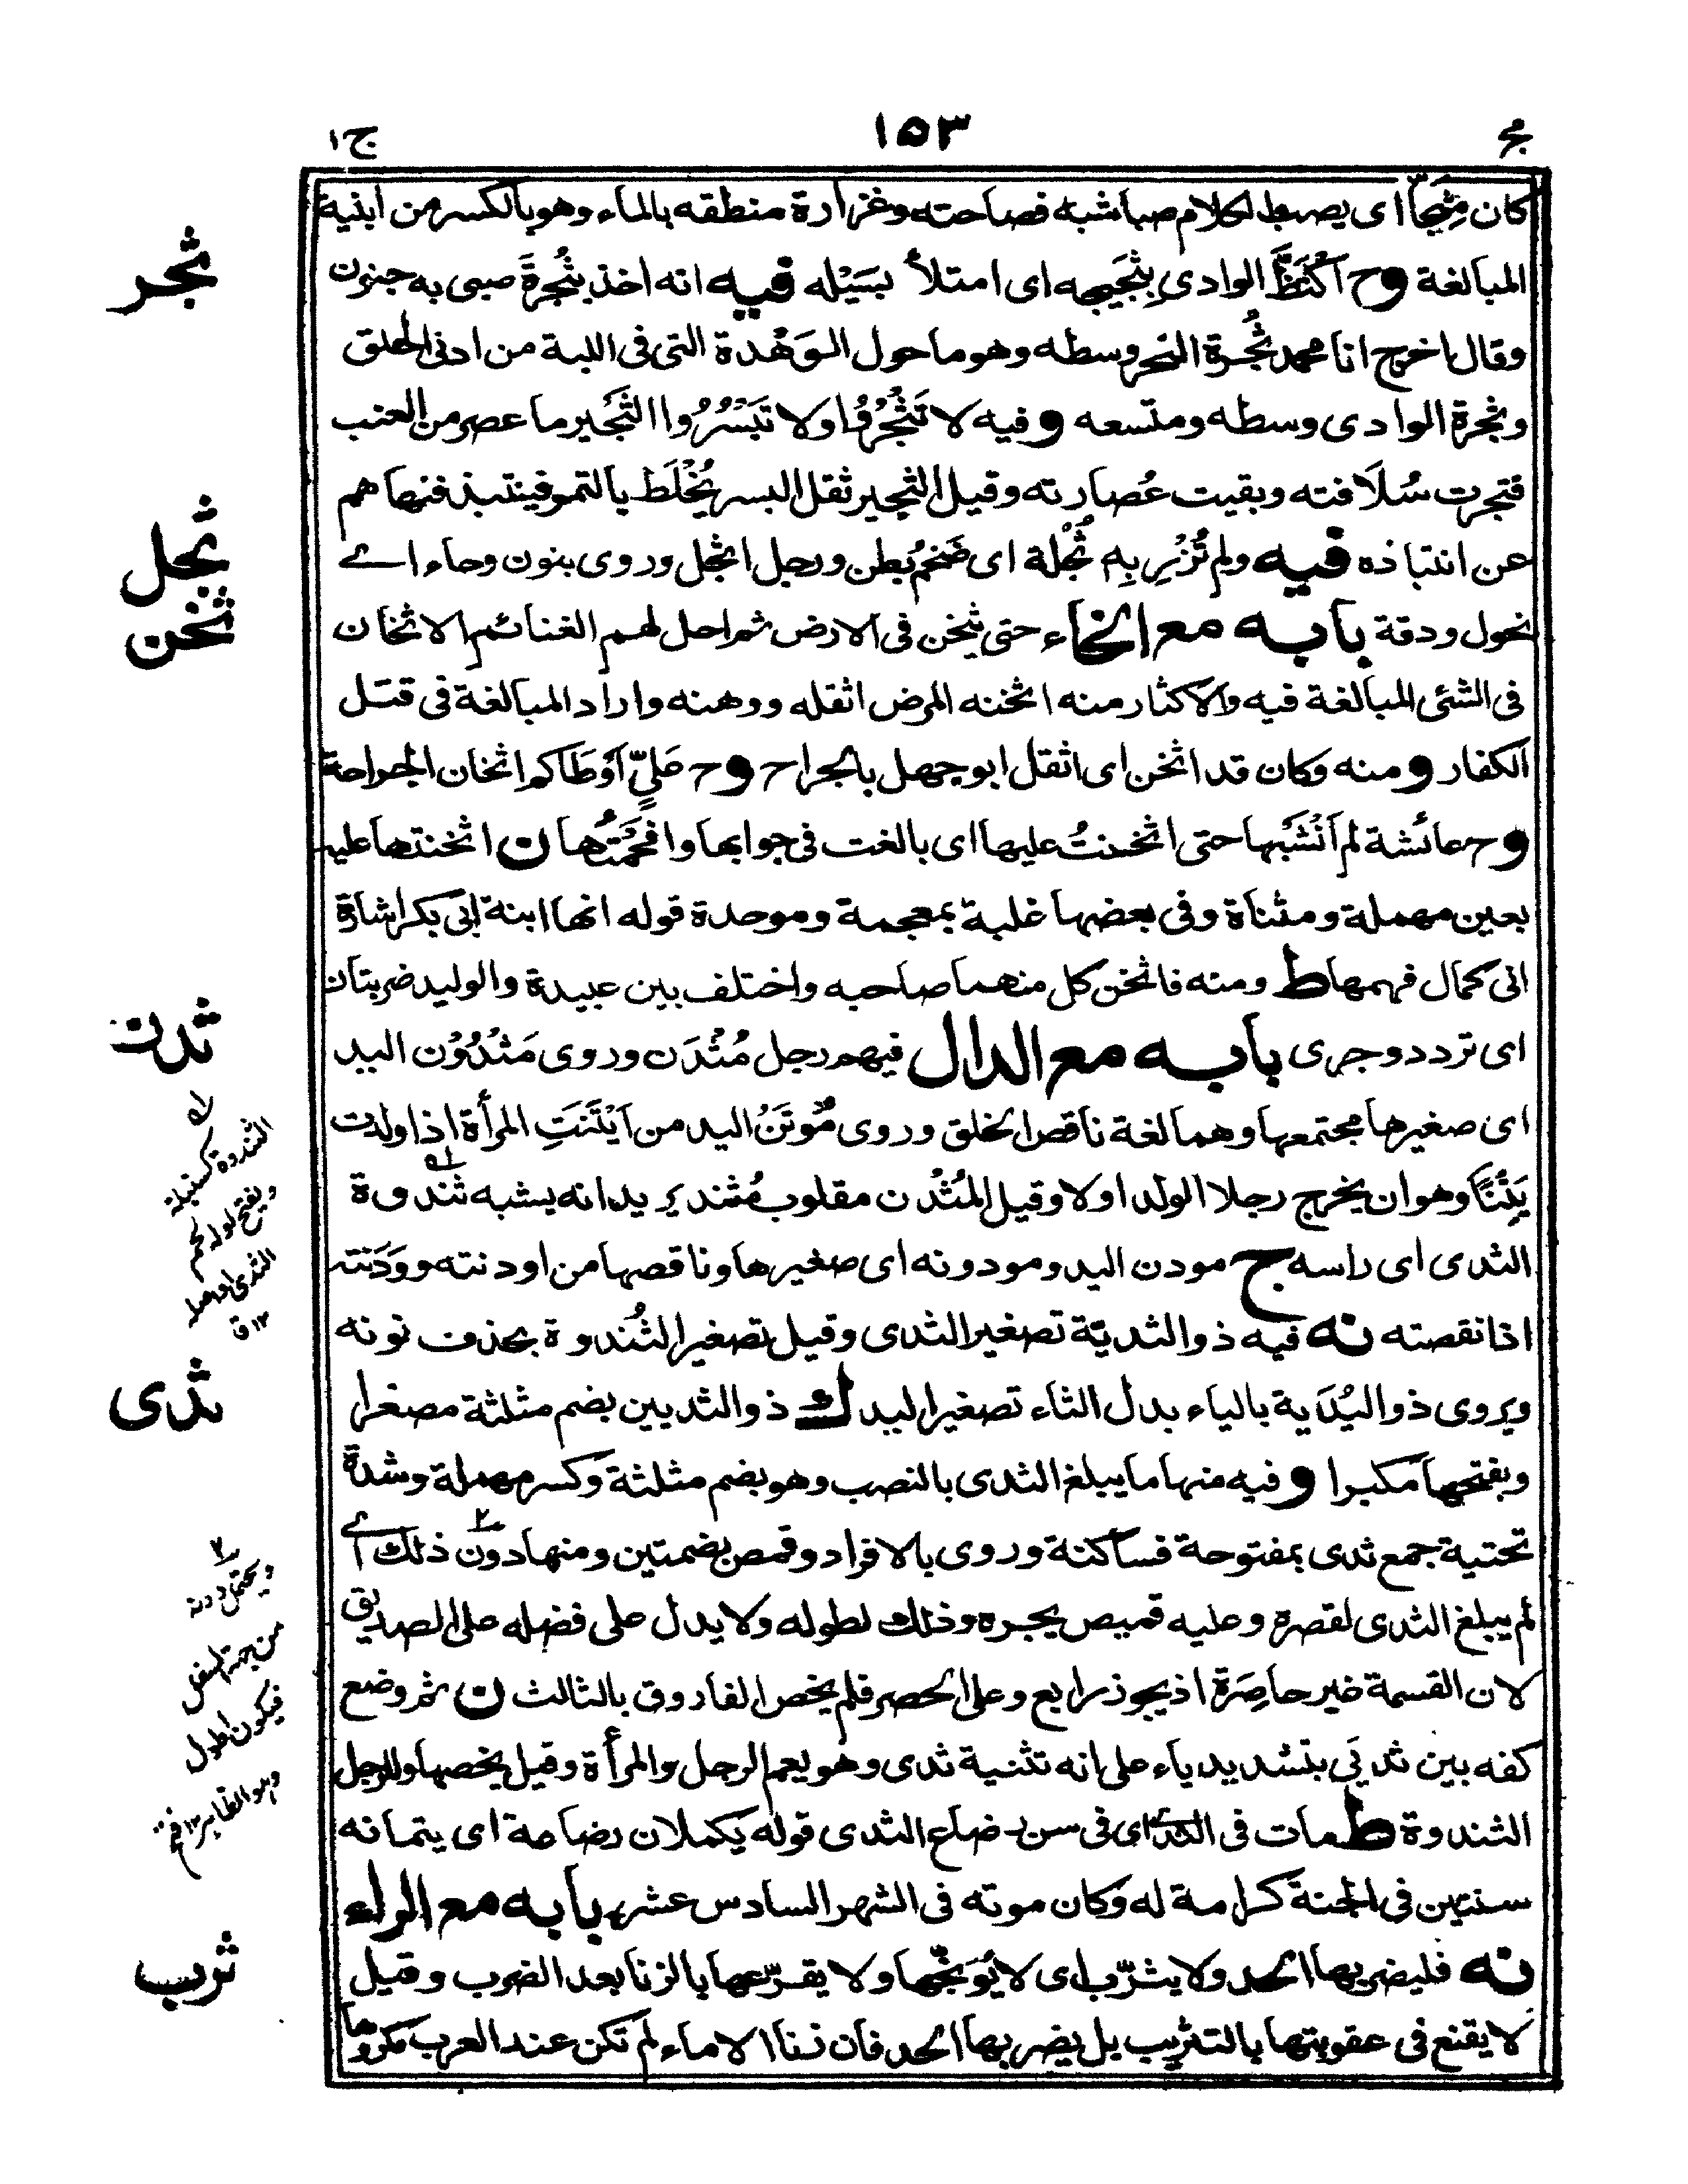 مج
١٥٣
ج١
كان مِثَجًّا اى يصب الكلام صبا شبه فصاحته وغزارة منطقه بالماء وهو بالكسر من ابنية
المبالغة وح اكْتَظَّ الوادى بِثَجِيجه اى امتلأ بسَيْله فيه انه اخذ بثُجرَة صبى به جنون
وقال اخرج انا محمد ثُجرة النحر وسطه وهو ما حول الوَهْدة التى فى اللبة من ادنى الحلق
وثجرة الوادى وسطه ومتسعه وفيه لا تَثْجُرُوا ولا تَبْسُرُوا الثَّجير ما عصر من العنب
فتجرت سُلَافته وبقيت عُصارته وقيل الثجير ثقل البسر يُخْلَط بالتمر فينتبذ فنهاهم
عن انتباذه فيه ولم تُزْرِ بِه ثُجْلة اى ضخم بطن ورجل اثجل وروى بنون وحاء اے
نحول ودقة بابه مع الخاء حتى يثخن فى الارض ثم احل لهم الغنائم الاثخان
فى الشئى المبالغة فيه والاكثار منه اثخنه المرض اثقله ووهنه واراد المبالغة فى قتل
الكفار ومنه وكان قد اثخن اى اثقل ابو جهل بالجراح وح عليّ اَوْطَاكم اثخان الجراحة
وح عائشة لم اَنْشَبْها حتى اثخنتُ عليها اى بالغت فى جوابها وافحمْتُها ن اثخنتها عليه
بعين مهملة ومثناة وفى بعضها غلبة بمعجمة وموحدة قوله انها ابنة ابى بكر اشارة
الى كمال فهمها ط ومنه فاثخن كل منهما صاحبه واختلف بين عبيدة والوليد ضربتان
اى تردد وجرى بابه مع الدال فيهم رجل مُثْدَن وروى مَثْدُوْن اليد
اى صغيرها مجتمعها وهما لغة ناقص الخلق وروى مُوْتَنُ اليد من اَيْتَنَتِ المرأة اذا ولدت
يَتْنًا وهو ان يخرج رجلا الولد اولا وقيل المُثْدن مقلوب مُثند يريد انه يشبه ثندوة
الثدى اى راسه ج مودن اليد ومودونه اى صغيرها وناقصها من اودنته وودَنته
اذا نقصته نه فيه ذو الثديّة تصغير الثدى وقيل تصغير الثُندوة بحذف نونه
ويروى ذو اليُدَية بالياء بدل الثاء تصغير اليد ك ذو الثديين بضم مثلثة مصغرا
وبفتحها مكبرا وفيه منها ما يبلغ الثدى بالنصب وهو بضم مثلثة وكسر مهملة وشدة
تحتية جمع ثدى بمفتوحة فساكنة وروى بالافراد وقمص بضمتين ومنها دون ذلك اے
لم يبلغ الثدى لقصرة وعليه قميص يجره وذلك لطوله ولا يدل على فضله على الصديق
لان القسمة غير حاصِرَة اذ يجوز رابع وعلى الحصر فلم يخص الفاروق بالثالث ن ثم وضع
كفه بين ثديَي بتشديد ياء على انه تثنية ثدى وهو يعم الرجل والمرأة وقيل يخصها وللرجل
الثندوة ط مات فى الثدى اى فى سن رضاع الثدى قوله يكملان رضاعة اى يتمانه
سنتين فى الجنة كرامة له وكان موته فى الشهر السادس عشر بابه مع الراء
نه فليضربها الحد ولا يثرّب اى لا يُوَبّخها ولا يقرّعها بالزنا بعد الضرب وقيل
لا يقنع فى عقوبتها بالتثريب بل يضربها الحد فان زنا الاماء لم تكن عند العرب مكروها
ثجر
ثجل
ثخن
ثدن
الثندوة كسنبلة
ويفتح اوله لحم
الثدى او اصله
١٢ ق
ثدى
ويحتمل دونه
من جهة السفل
فيكون اطول
وهو الظاهر ١٢ فتح
ثرب